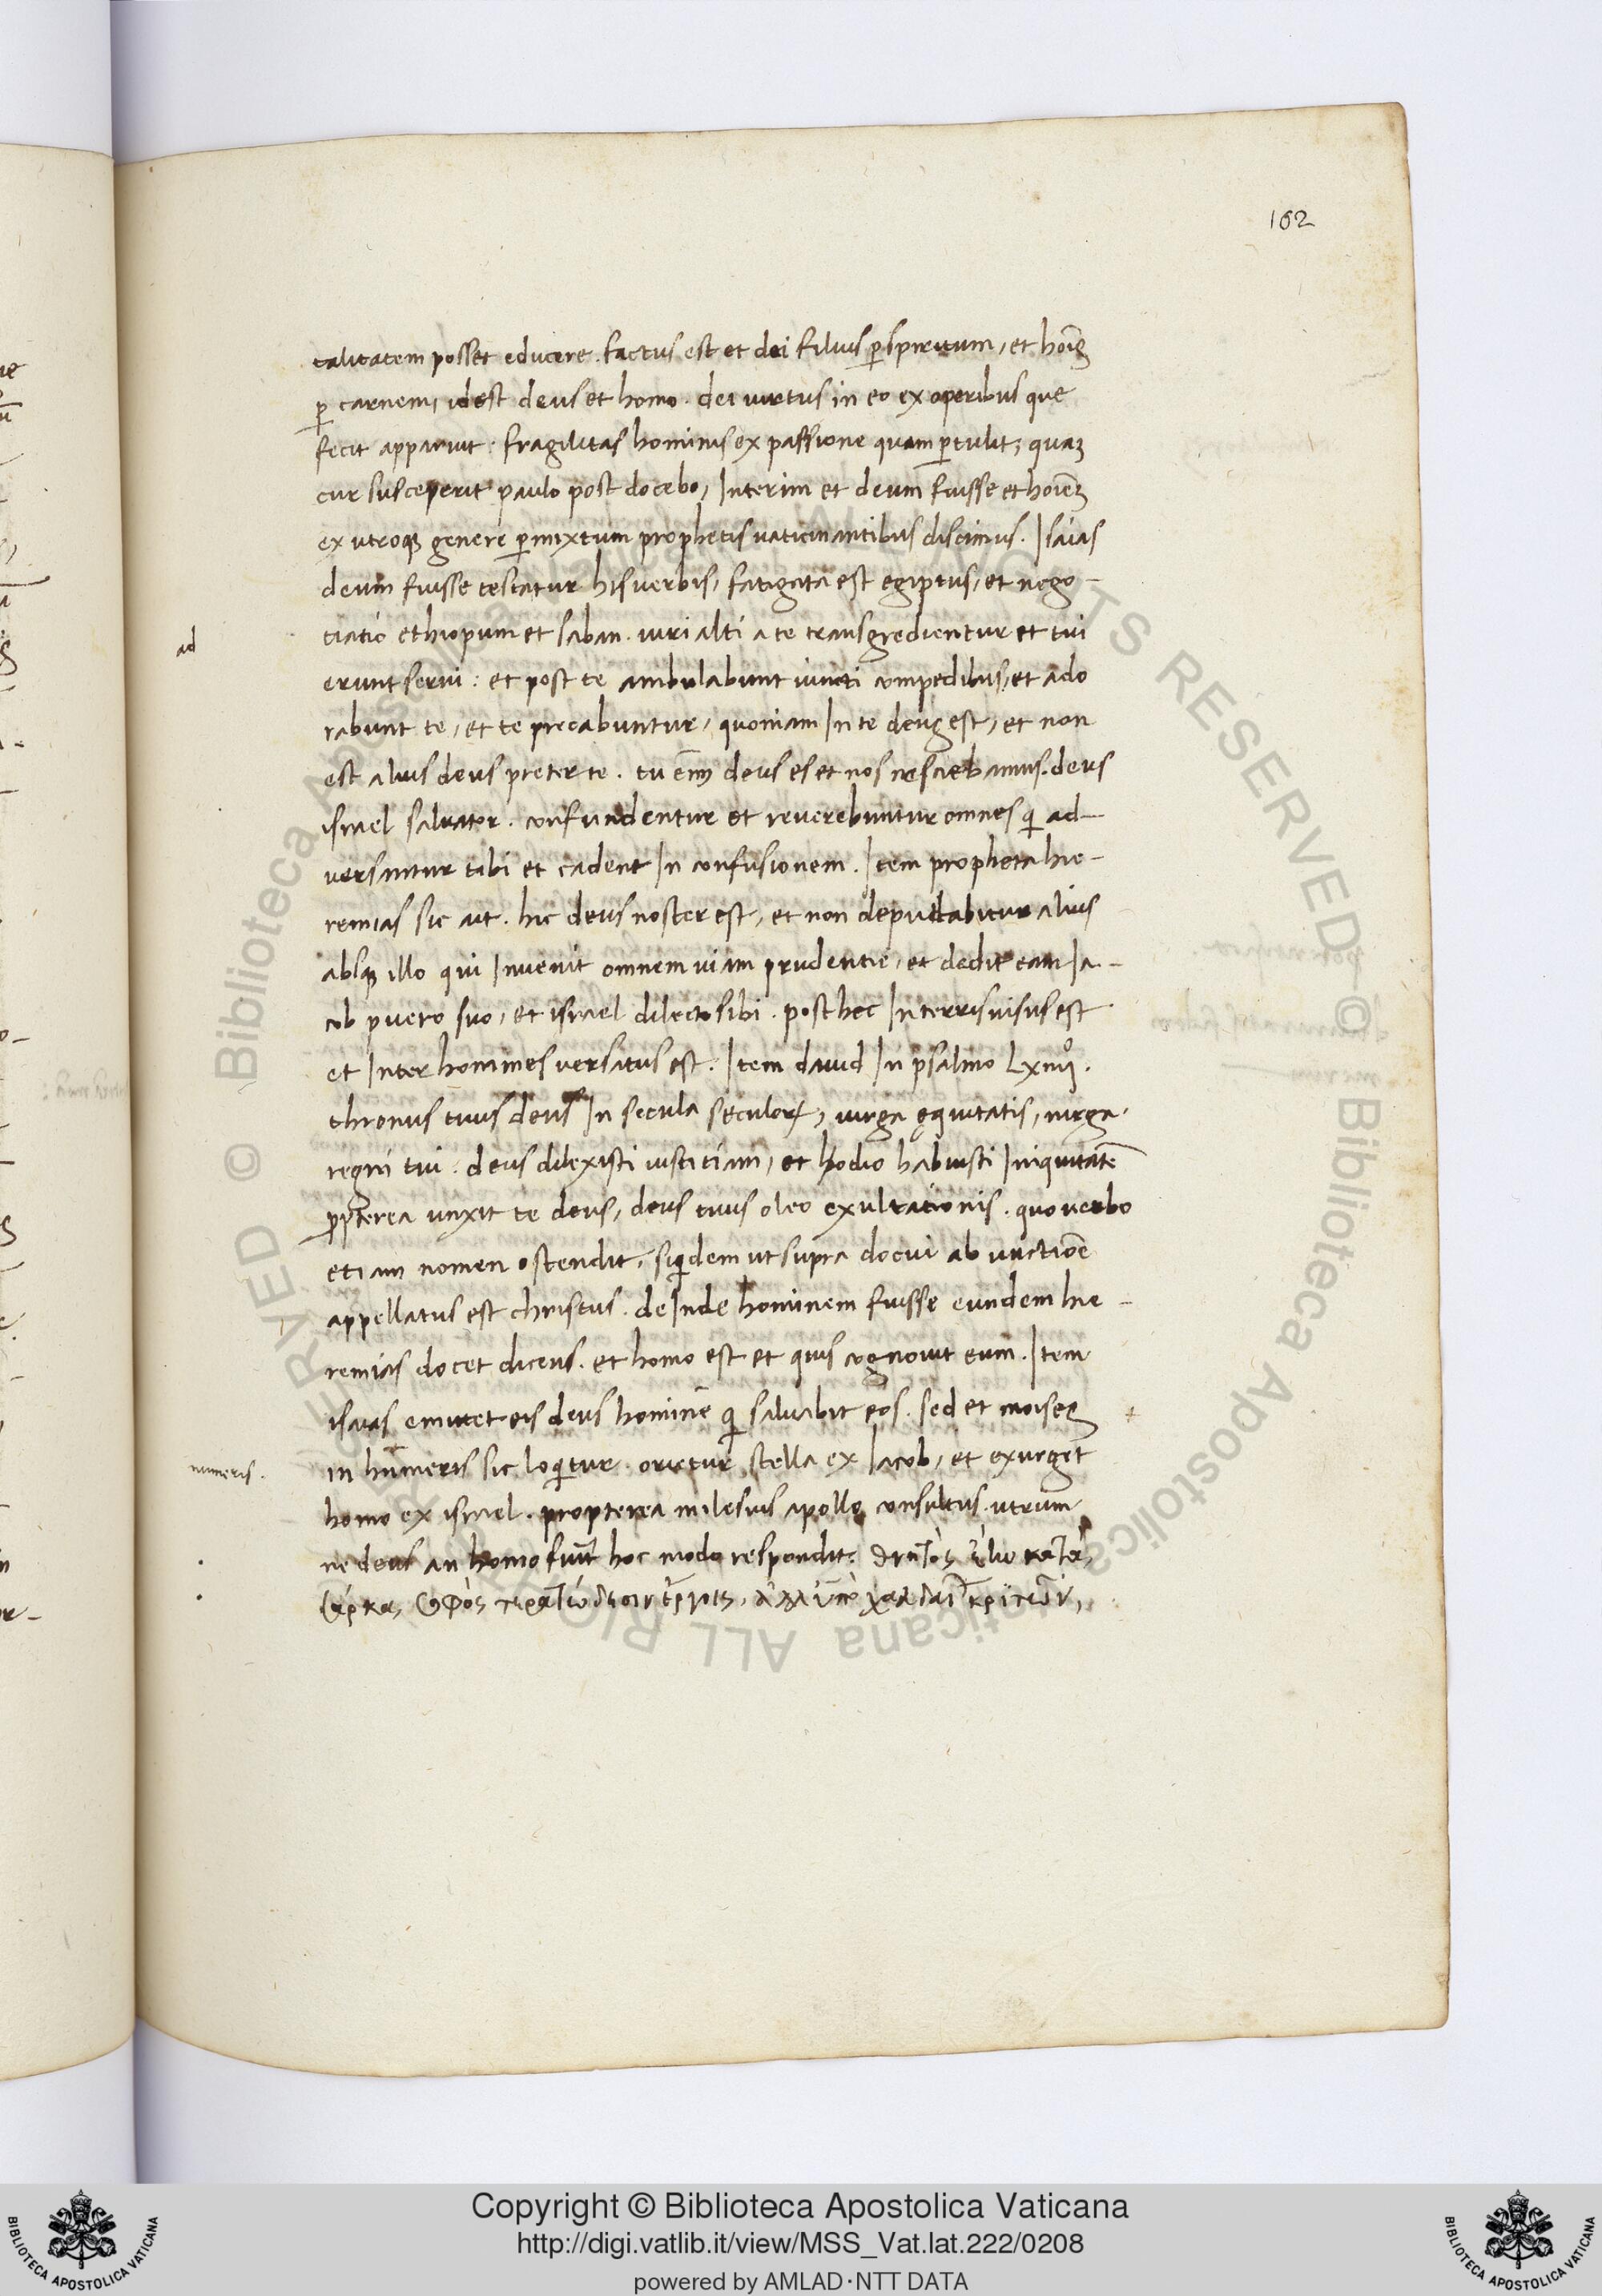 162
talitatem posset educere. factus est et dei filius p̱ spiritum, et hoīs
p̱ carnem, idest deus et homo. dei uirtus in eo ex operibus que
fecit apparuit: fragilitas hominis ex passione quam p̱tulit, quaʒ
cur susceperit paulo post docebo, Interim et deum fuisse et hoīeʒ
ex utroqʒ genere p̱mixtum prophetis uaticinantibus discimus. Isaias
deum fuisse testatur his uerbis, fatigata est egiptus, et nego-
ad
tiatio ethiopum et saban. uiri alti a te transgredientur et tui
erunt serui: et post te ambulabunt iuncti compedibus, et ado
rabunt te, et te precabuntur, quoniam In te deus est, et non
est alius deus preter te. tu eīm deus es et nos nesciebamus. deus
israel saluator. confundentur et reuerebuntur omnes qi ad-
versantur tibi et cadent In confusionem. Item propheta hie-
remias sic ait. hic deus noster est, et non deputabitur alius
absqʒ illo qui Inuenit omnem uiam prudentie, et dedit eam Ia-
cob puero suo, et israel dilecto sibi. post hec In terris uisus est
et Inter homines uersatus est. Item dauid In psalmo Lxiiijº.
thronus tuus deus In secula seculoꝝ, uirga ęquitatis, uirga
regni tui. deus dilexisti iustitiam, et hodio habuisti Iniquitatē
propterea unxit te deus, deus tuus oleo exultationis. quo uerbo
etiam nomen ostendit, siqidem ut supra docui ab unctiōe
appellatus est christus. deInde hominem fuisse eundem hie-
remias docet dicens. et homo est et quis cognouit eum. Item
isaias emittet eis deus hominē qi saluabit eos. sed et moises
numeris.
in humeris sic loqitur. orietur stella ex Iacob, et exurget
homo ex israel. propterea milesius apollo consultus. utrum
ne deus an homo fuīt hoc modo respondit: θνητὸς ἔην κατὰ
σάρκα, σοφὸς τερατώδεσιν ἔργοις,
Copyright © Biblioteca Apostolica Vaticana
http://digi.vatlib.it/view/MSS_Vat.lat.222/0208
powered by AMLAD·NTT DATA
BIBLIOTECA APOSTOLICA VATICANA
BIBLIOTECA APOSTOLICA VATICANA